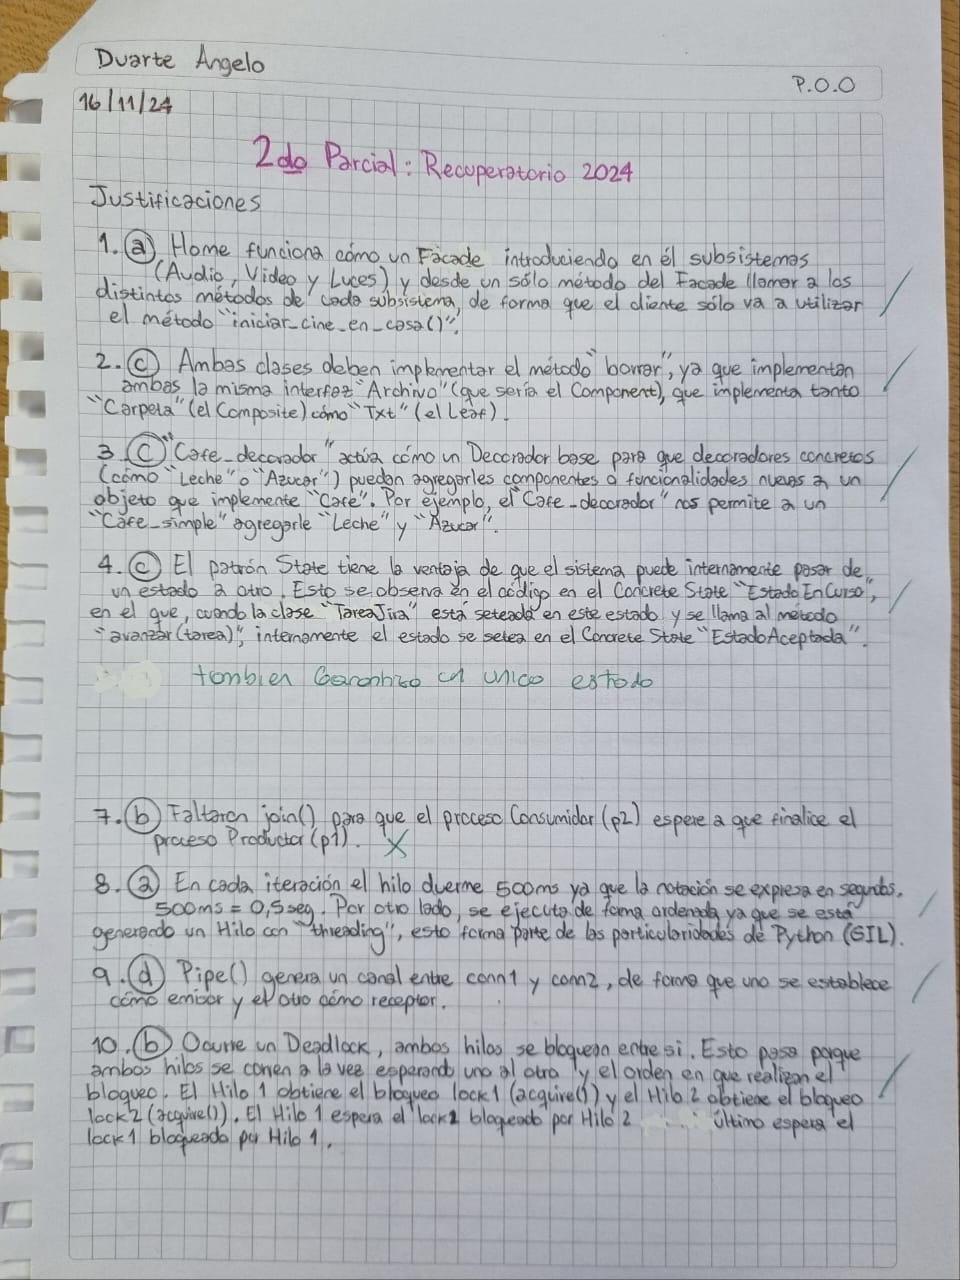 Duarte Angelo
P.O.O
16/11/24
2do Parcial: Recuperatorio 2024
Justificaciones
1. a) Home funciona cómo un Facade introduciendo en él subsistemas
(Audio, Video y Luces) y desde un sólo método del Facade llamar a los
distintos métodos de cada subsistema, de forma que el cliente sólo va a utilizar
el método "iniciar_cine_en_casa()".
2. c) Ambas clases deben implementar el método "borrar", ya que implementan
ambas la misma interfaz "Archivo" (que sería el Component), que implementa tanto
"Carpeta" (el Composite) cómo "Txt" (el Leaf).
3. c) "Cafe_decorador" actúa cómo un Decorador base para que decoradores concretos
(cómo "Leche" o "Azucar") puedan agregarles componentes o funcionalidades nuevas a un
objeto que implemente "Cafe". Por ejemplo, el "Cafe_decorador" nos permite a un
"Cafe_simple" agregarle "Leche" y "Azucar".
4. c) El patrón State tiene la ventaja de que el sistema puede internamente pasar de
un estado a otro. Esto se observa en el código en el Concrete State "EstadoEnCurso",
en el que, cuando la clase "TareaJira" está seteada en este estado y se llama al método
"avanzar(tarea)", internamente el estado se setea en el Concrete State "EstadoAceptada".
tambien un unico estado
7. b) Faltaron join() para que el proceso Consumidor (p2) espere a que finalice el
proceso Productor (p1). X
8. a) En cada iteración el hilo duerme 500ms ya que la notación se expresa en segundos.
500ms = 0,5seg. Por otro lado, se ejecuta de forma ordenada ya que se está
generando un Hilo con "threading", esto forma parte de las particularidades de Python (GIL).
9. d) Pipe() genera un canal entre conn1 y conn2, de forma que uno se establece
cómo emisor y el otro cómo receptor.
10. b) Ocurre un Deadlock, ambos hilos se bloquean entre si. Esto pasa porque
ambos hilos se corren a la vez esperando uno al otro y el orden en que realizan el
bloqueo. El Hilo 1 obtiene el bloqueo lock1 (acquire()) y el Hilo 2 obtiene el bloqueo
lock2 (acquire()). El Hilo 1 espera el lock2 bloqueado por Hilo 2 último espera el
lock1 bloqueado por Hilo 1.